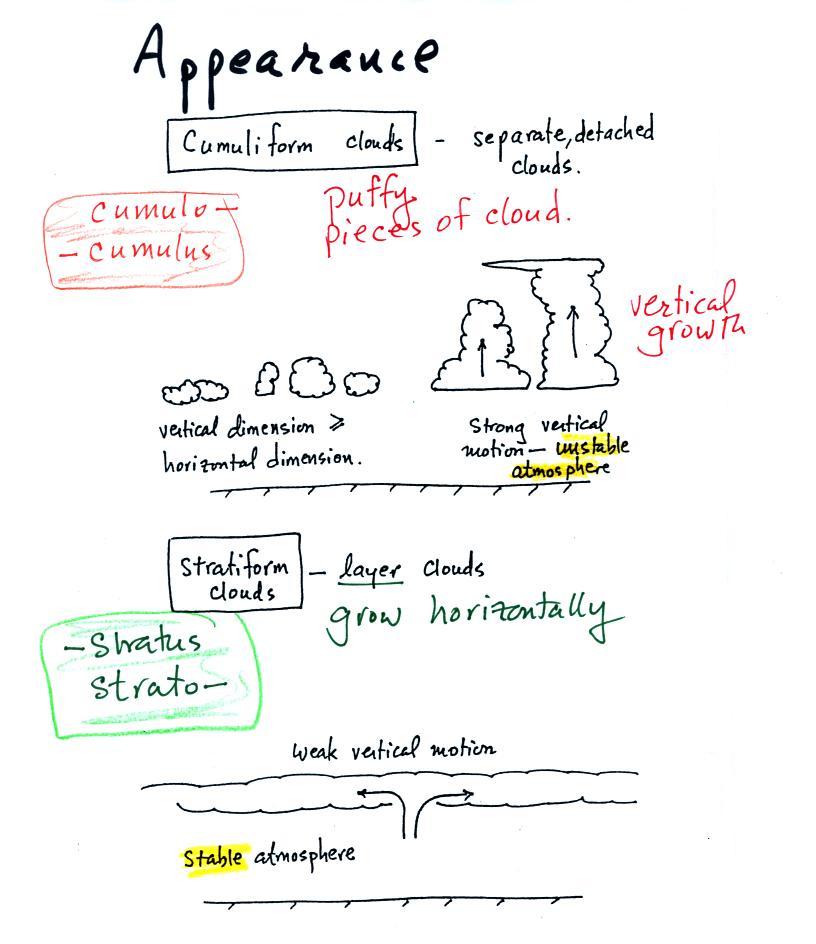 Appearance
Cumuliform clouds - separate, detached
clouds.
cumulo-
- cumulus
puffy
pieces of cloud.
vertical
growth
vertical dimension ≥
horizontal dimension.
Strong vertical
motion - unstable
atmosphere
Stratiform
clouds
- layer clouds
grow horizontally
- Stratus
Strato-
Weak vertical motion
Stable atmosphere